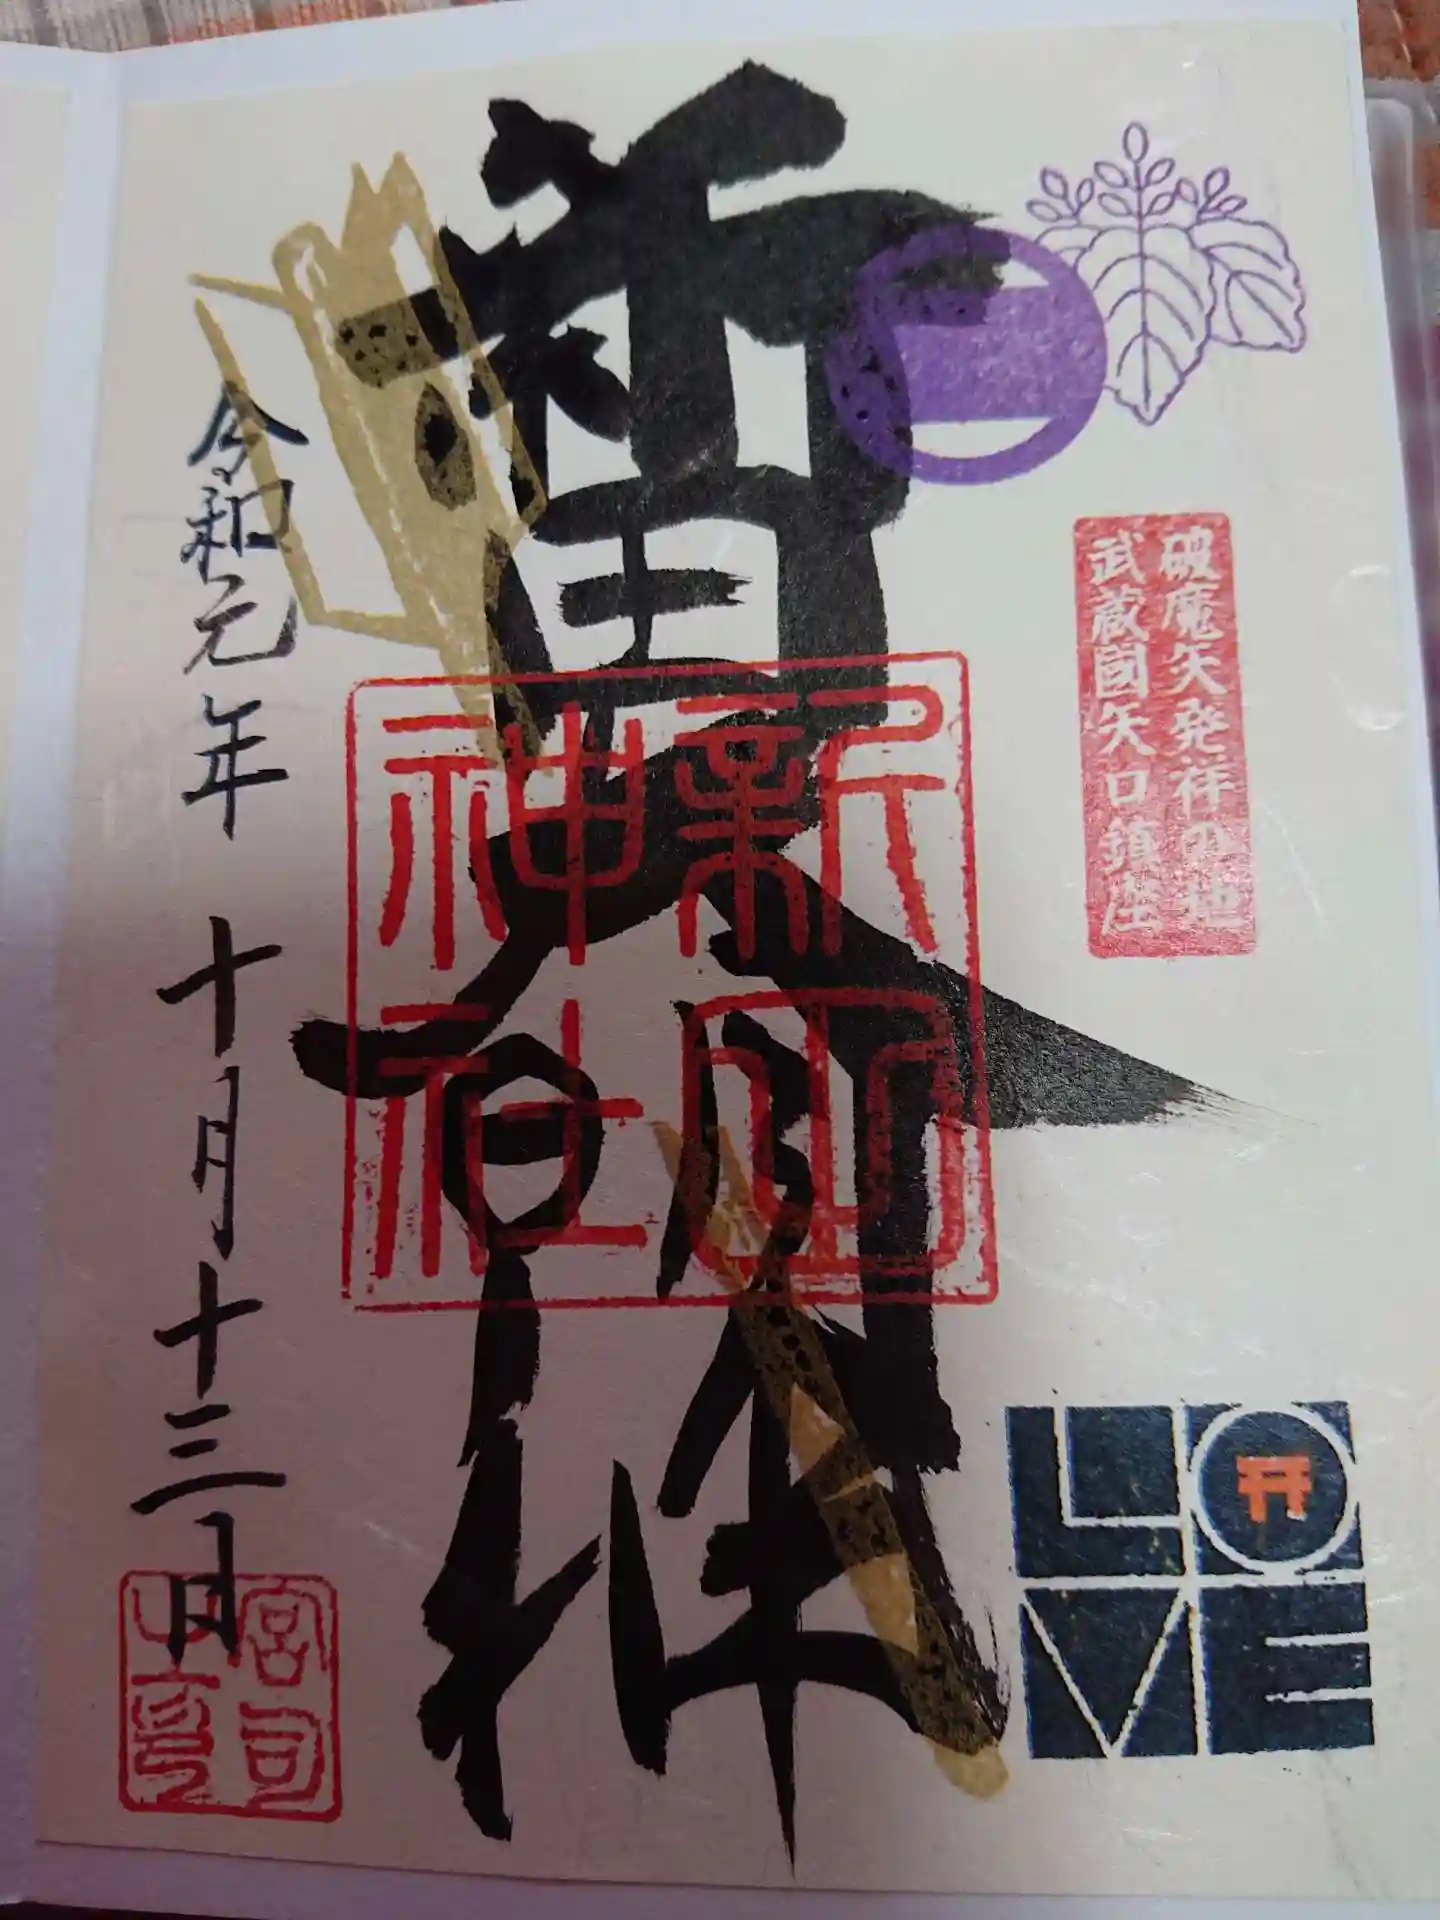 破魔矢発祥の地
武蔵國矢口鎮座
新田
神社
令和元年 十月十三日
宮司
之印
LO
VE